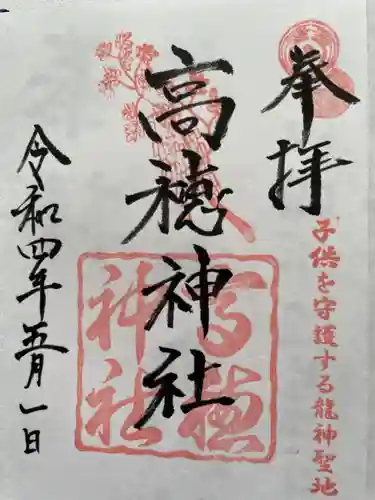 奉拝
子供を守護する龍神聖地
高穂神社
高穂神社
令和四年五月一日